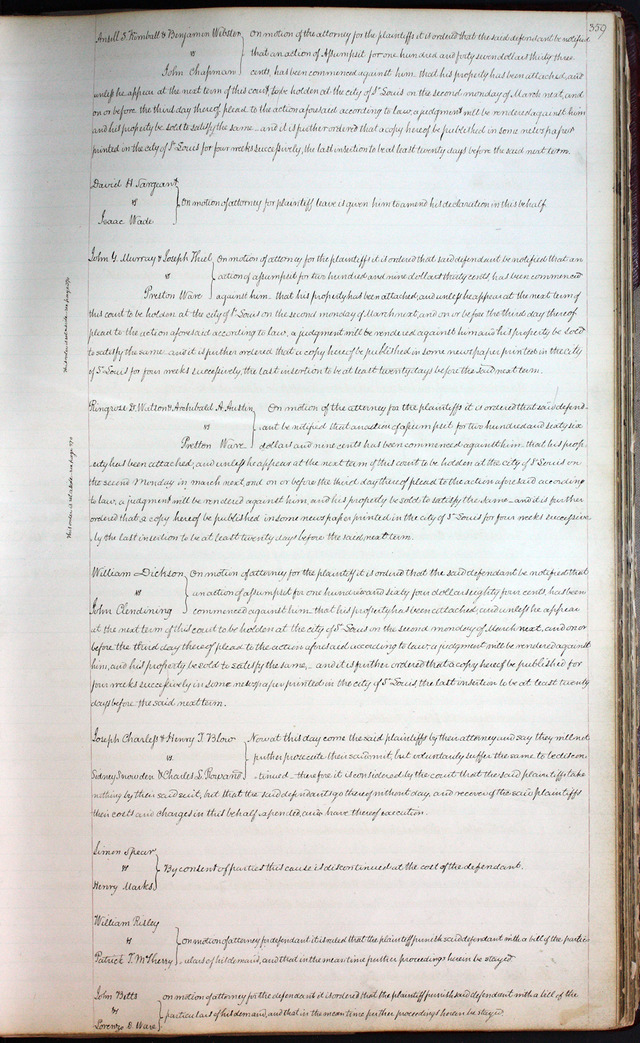 359
Ansell S. Kimball & Benjamin Webster } On motion of the attorney for the plaintiffs it is ordered that the said defendant be notified
vs that an action of Assumpsit for one hundred and forty seven dollars thirty three
John Chapman cents, has been commenced against him that his property has been attached, and
unless he appear at the next term of this court to be holden at the city of St Louis on the second monday of March next, and
on or before the third day thereof plead to the action aforesaid according to law, a judgment will be rendered against him
and his property be sold to satisfy the same – and it is further ordered that a copy hereof be published in some newspaper
printed in the city of St Louis for four weeks successively, the last insertion to be at least twenty days before the said next term.
David H. Sargeant
vs } On motion of attorney for plaintiff leave is given him to amend his declaration in this behalf
Isaac Wade
John G. Murray & Joseph Thiel } On motion of attorney for the plaintiffs it is ordered that said defendant be notified that an
vs action of assumpsit for two hundred and nine dollars thirty cents, has been commenced
Preston Ware against him that his property has been attached, and unless he appear at the next term of
this court to be holden at the city of St Louis on the second monday of March next, and on or before the third day thereof
plead to the action aforesaid according to law, a judgment will be rendered against him and his property be sold
to satisfy the same. and it is further ordered that a copy hereof be published in some newspaper printed in the city
of St Louis for four weeks successively, the last insertion to be at least twenty days before the said next term.
Ringrose D. Watson & Archibald A. Austin } On motion of the attorney for the plaintiffs it is ordered that said defend-
vs ant be notified that an action of assumpsit for two hundred and sixty six
Preston Ware dollars and nine cents has been commenced against him that his prop-
erty has been attached, and unless he appear at the next term of this court to be holden at the city of St Louis on
the second Monday in march next, and on or before the third day thereof plead to the action aforesaid according
to law, a judgment will be rendered against him, and his property be sold to satisfy the same – and it is further
ordered that a copy hereof be published in some newspaper printed in the city of St Louis for four weeks successive-
ly the last insertion to be at least twenty days before the said next term.
William Dickson } On motion of attorney for the plaintiff it is ordered that the said defendant be notified that
vs an action of assumpsit for one hundred and sixty four dollars eighty four cents, has been
John Clendining commenced against him, that his property has been attached, and unless he appear
at the next term of this court to be holden at the city of St Louis on the second monday of March next, and on or
before the third day thereof plead to the action aforesaid according to law a judgment will be rendered against
him, and his property be sold to satisfy the same, – and it is further ordered that a copy hereof be published for
four weeks successively in some newspaper printed in the city of St Louis, the last insertion to be at least twenty
days before the said next term.
Joseph Charless & Henry T. Blow } Now at this day come the said plaintiffs by their attorney and say they will not
vs further prosecute their said suit, but voluntarily suffer the same to be discon-
Sidney Snowden & Charles S. Rowand tinued – therefore it is considered by the court that the said plaintiffs take
nothing by their said suit, but that the said defendants go thereof without day, and recover of the said plaintiffs
their costs and charges in this behalf expended, and have thereof execution.
Simon Spear
vs } By consent of parties this cause is discontinued at the cost of the defendant.
Henry Marks
William Risley
vs } on motion of attorney for defendant it is ruled that the plaintiff furnish said defendant with a bill of the partic-
Patrick T. McSherry ulars of his demand, and that in the mean time further proceedings herein be stayed
John Betts } on motion of attorney for the defendant it is ordered that the plaintiff furnish said defendant with a bill of the
vs particulars of his demand, and that in the mean time further proceedings herein be stayed.
Lorenzo D. Ware